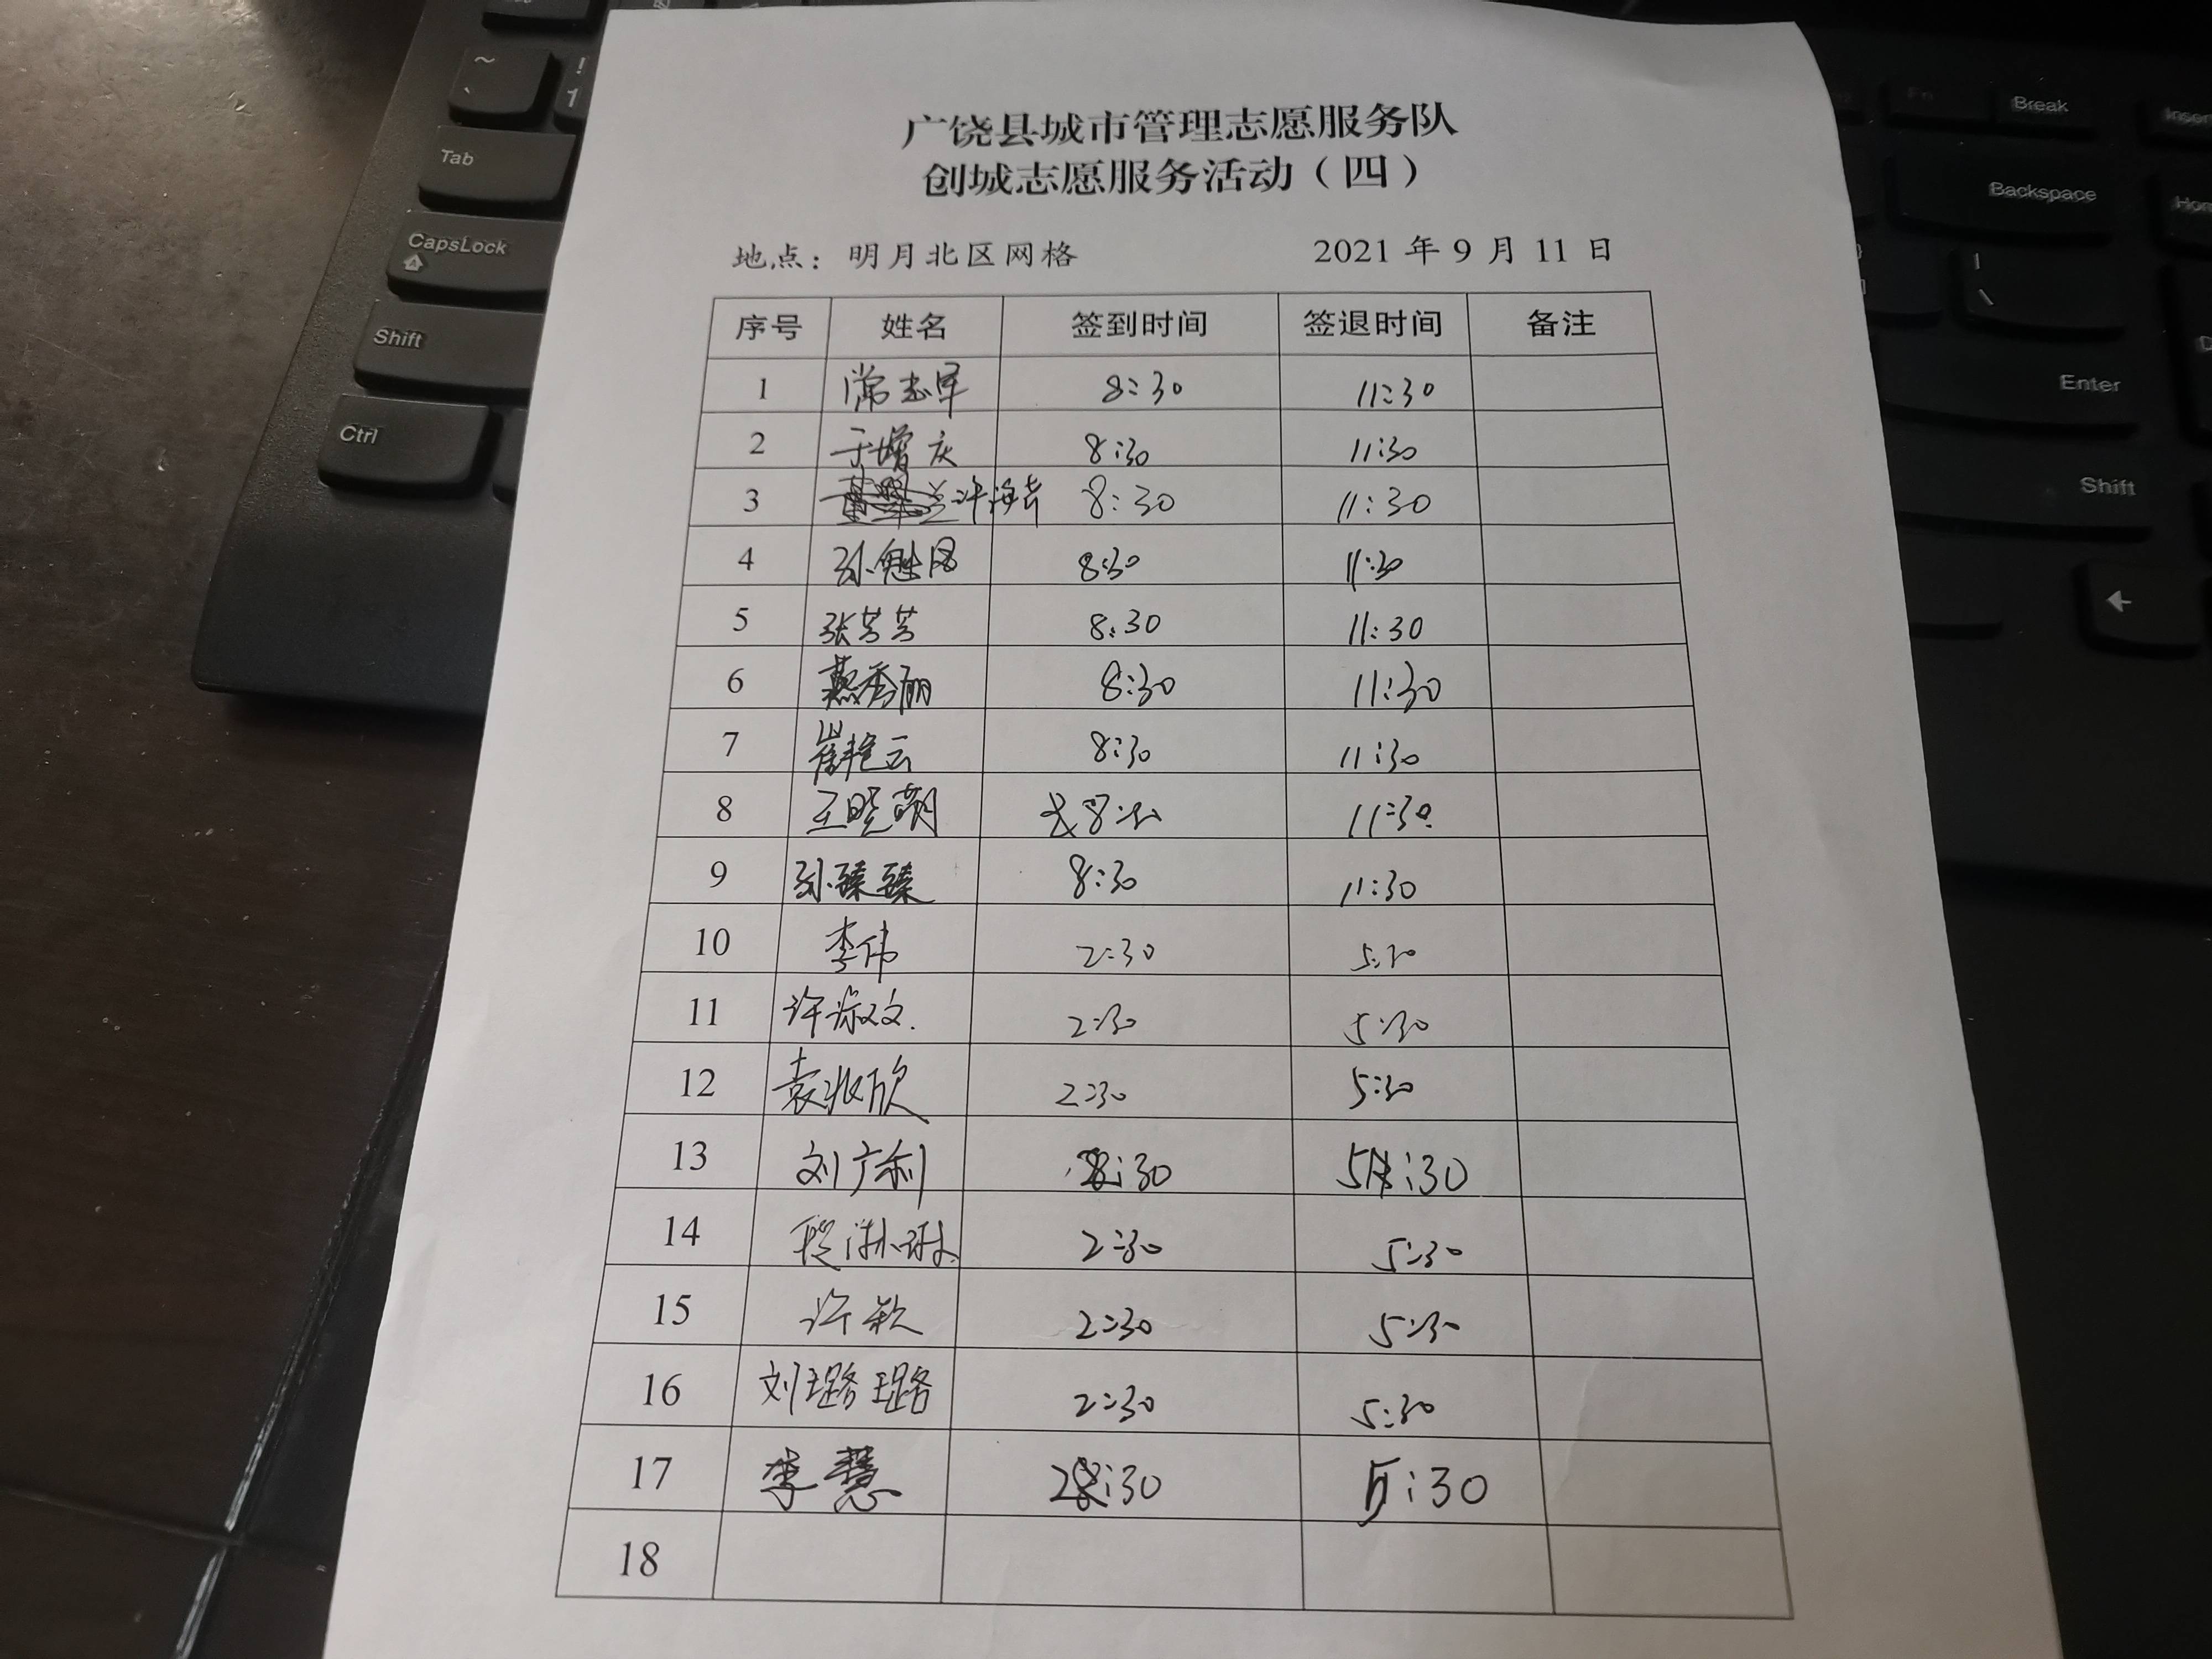 广饶县城市管理志愿服务队
创城志愿服务活动（四）
地点：明月北区网格 2021 年 9 月 11 日
序号 姓名 签到时间 签退时间 备注
1 常志军 8:30 11:30
2 于增庆 8:30 11:30
3 8:30 11:30
4 孙 8:30 11:30
5 张芳芳 8:30 11:30
6 燕秀丽 8:30 11:30
7 崔艳云 8:30 11:30
8 王晓萌 8:30 11:30
9 孙臻臻 8:30 11:30
10 李伟 2:30 5:30
11 许淑文 2:30 5:30
12 袁兆欣 2:30 5:30
13 刘广利 2:30 5:30
14 程淋琳 2:30 5:30
15 许敏 2:30 5:30
16 刘璐璐 2:30 5:30
17 李慧 2:30 5:30
18
~
`
!
1
Tab
CapsLock
Shift
Ctrl
Fn
Break
Insert
Backspace
|
\
Enter
Shift
←